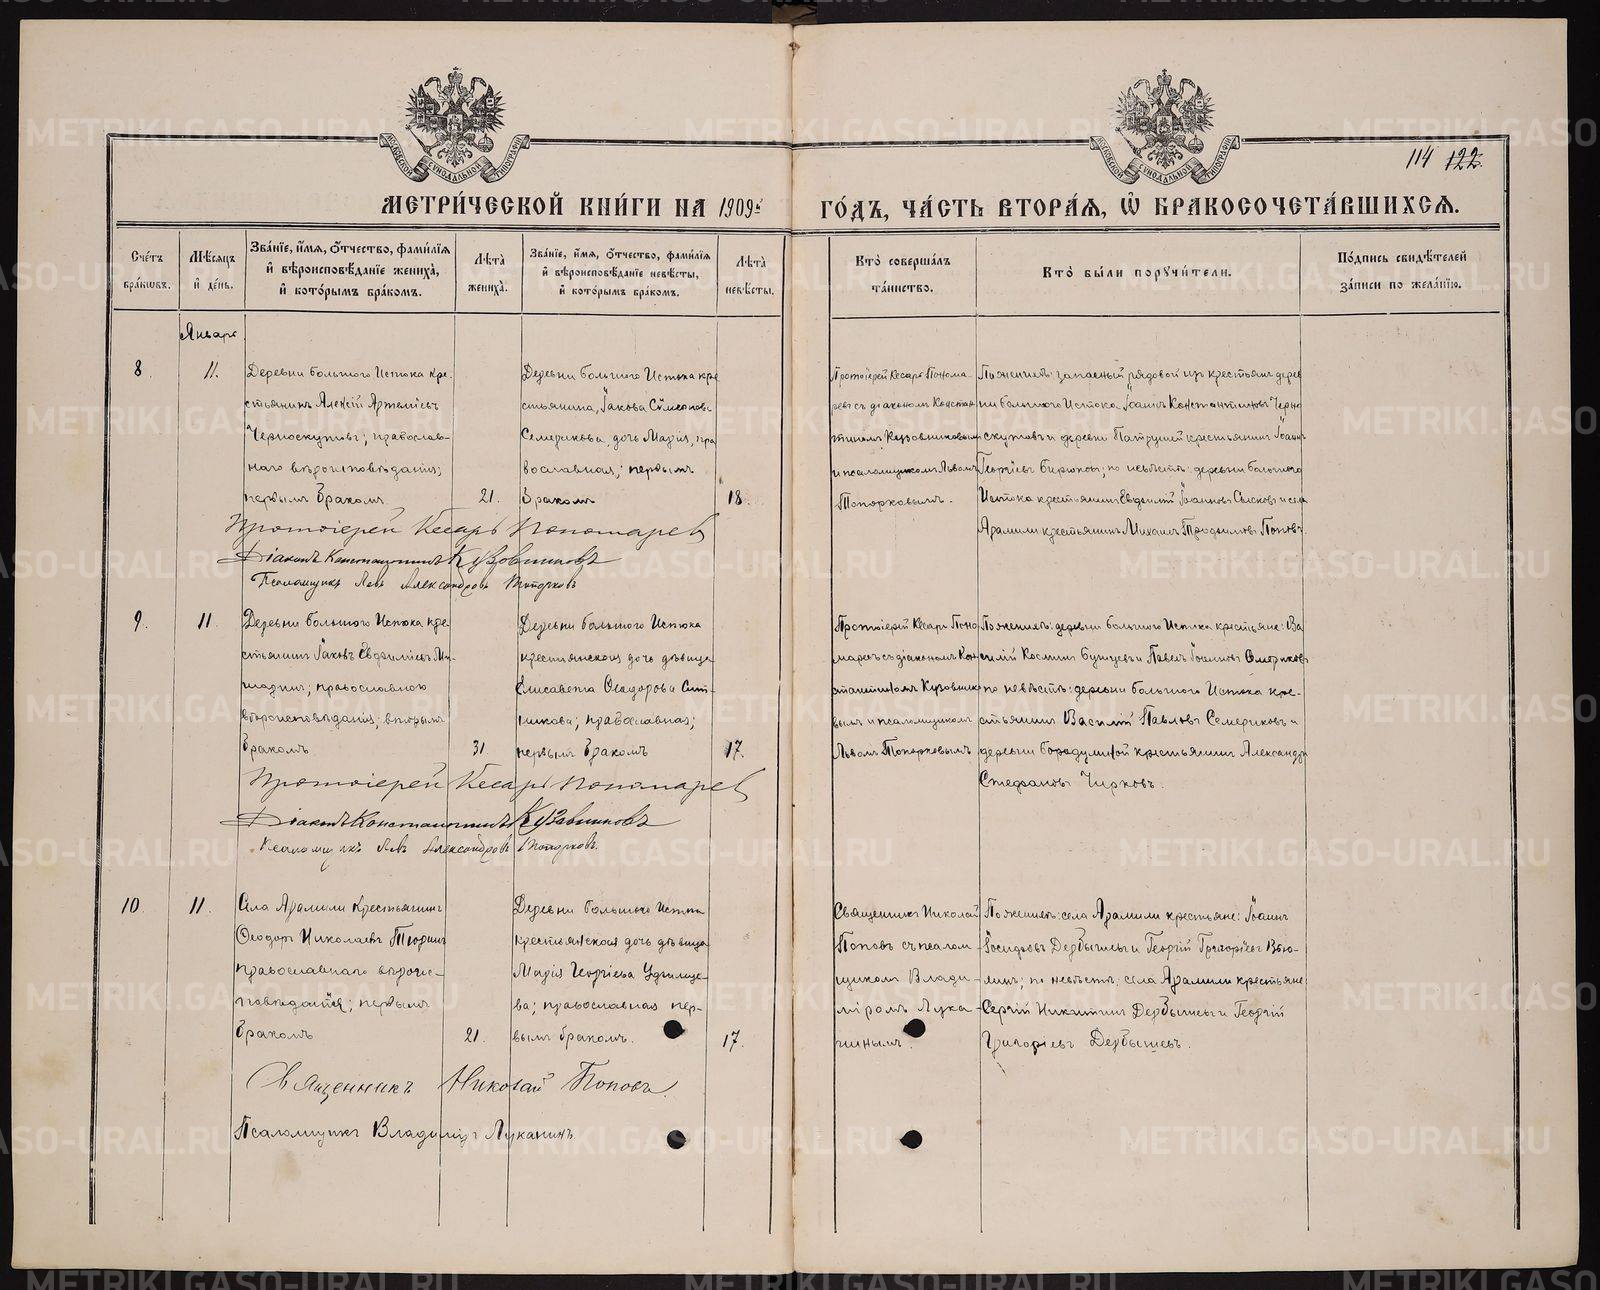 МОСКОВСКОЙ СѴНОДАЛЬНОЙ ТИПОГРАФІИ
МОСКОВСКОЙ СѴНОДАЛЬНОЙ ТИПОГРАФІИ
114 122.
МЕТРИ́ЧЕСКОЙ КНИ́ГИ НА 1909й ГО́ДЪ, ЧА́СТЬ ВТОРА́Я, Ѡ БРАКОСОЧЕТА́ВШИХСЯ.
Сче́тъ бра́кѡвъ.
Мѣ́сяцъ и де́нь.
Зва́нїе, и́мя, о́тчество, фами́лїя и вѣроисповѣ́данїе жениха̀, и кото́рымъ бра́комъ.
Лѣ́та жениха̀.
Зва́нїе, и́мя, о́тчество, фами́лїя и вѣроисповѣ́данїе невѣ́сты, и кото́рымъ бра́комъ.
Лѣ́та невѣ́сты.
Кто̀ соверша́лъ та́инство.
Кто̀ бы́ли поручи́тели.
По́дпись свидѣ́телей за́писи по жела́нїю.
Январь
8.
11.
Деревни большого Истока кре-
стьянинъ Алексій Артеміевъ
Черноскутовъ; православ-
наго вѣроисповѣданія;
первымъ бракомъ
21.
Деревни большого Истока кре
стьянина, Іакова Сѵмеонова
Семерикова, дочь Марія, пра
вославная; первымъ
бракомъ
18.
Протоіерей Кесарь Понома-
ревъ съ діакономъ Констан
тиномъ Кузовниковымъ
и псаломщикомъ Львомъ
Топорковымъ.
По женихѣ: запасный рядовой изъ крестьянъ дерев
ни большого Истока Іоаннъ Константиновъ Черно
скутовъ и деревни Патрушей крестьянинъ Іоаннъ
Георгіевъ Бирюковъ; по невѣстѣ: деревни большого
Истока крестьянинъ Евдокимъ Іоанновъ и села
Арамили крестьянинъ Михаилъ Трофимовъ Поповъ
Протоіерей Кесарь Пономаревъ
Діаконъ Константинъ Кузовниковъ
Псаломщикъ Левъ Александровъ Топорковъ
9.
11.
Деревни большого Истока кре
стьянинъ Іаковъ Евфиміевъ
православнаго
вѣроисповѣданія; вторымъ
бракомъ
31.
Деревни большого Истока
крестьянская дочь дѣвица
Елисавета Ѳеодорова Сит-
никова; православная;
первымъ бракомъ
17.
Протоіерей Кесарь Поно
маревъ съ діакономъ Кон
стантиномъ Кузовнико
вымъ и псаломщикомъ
Львомъ Топорковымъ
По женихѣ: деревни большого Истока крестьяне: Ва
силій Косминъ и Павелъ Іоанновъ
по невѣстѣ: деревни большого Истока кре-
стьянинъ Василій Павловъ Семериковъ и
деревни Бородулиной крестьянинъ Александръ
Стефановъ Чирковъ.
Протоіерей Кесарь Пономаревъ
Діаконъ Константинъ Кузовниковъ
Псаломщикъ Левъ Александровъ Топорковъ.
10.
11.
Села Арамили крестьянинъ
Ѳеодоръ Николаевъ
православнаго вѣроис-
повѣданія; первымъ
бракомъ
21.
Деревни большого Истока
крестьянская дочь дѣвица
Марія Георгіева Удинце-
ва; православная пер-
вымъ бракомъ.
17.
Священникъ Николай
Поповъ съ псалом
щикомъ Влади
міромъ Лука
нинымъ.
По женихѣ: села Арамили крестьяне: Іоаннъ
Іосифовъ Дербышевъ и Георгій Григорьевъ Вью-
шинъ; по невѣстѣ: села Арамили крестьяне
Сергій Никитинъ Дербышевъ и Георгій
Григорьевъ Дербышевъ.
Священникъ Николай Поповъ.
Псаломщикъ Владиміръ Луканинъ.
METRIKI.GASO-URAL.RU